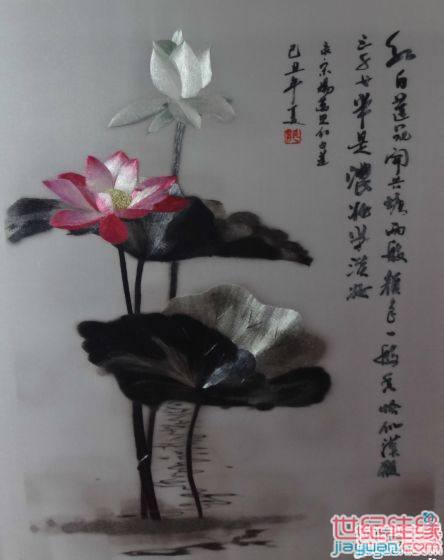 红白莲花开共塘两般颜色一般香恰似汉殿
三千女半是浓妆半淡妆
录宋杨万里红白莲
己丑年夏
世纪佳缘
jiayuan.com